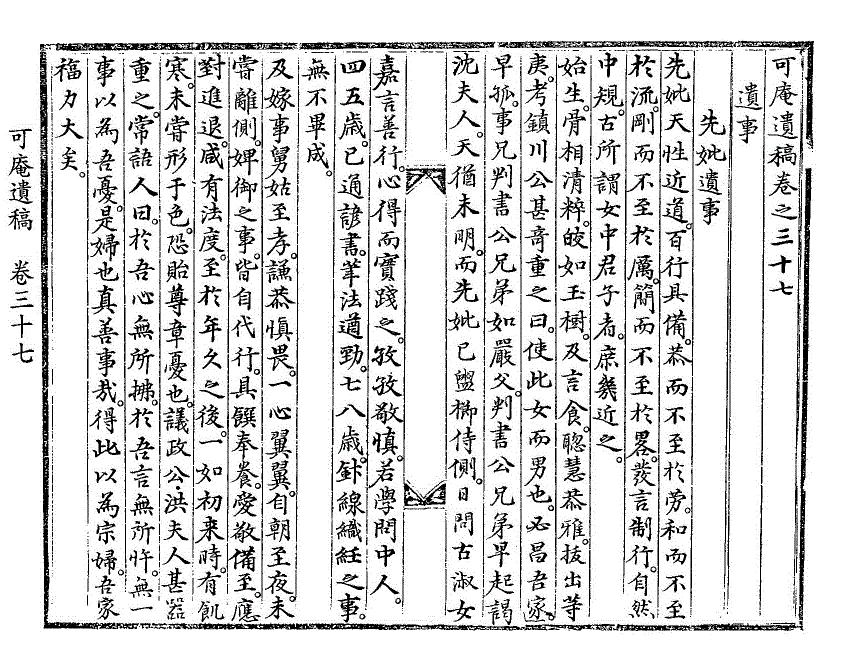 可庵遺稿卷之三十七
遺事
先妣遺事
先妣天性近道。百行具備。恭而不至於勞。和而不至
於流。剛而不至於厲。簡而不至於畧。發言制行。自然
中規。古所謂女中君子者。庶幾近之。
始生。骨相清粹。皎如玉樹。及言食。聰慧恭雅。拔出等
夷。考鎭川公甚奇重之曰。使此女而男也。必昌吾家。
早孤。事兄判書公兄弟如嚴父。判書公兄弟早起謁
沈夫人。天猶未明。而先妣已盥櫛侍側。日問古淑女
嘉言善行。心得而實踐之。孜孜敬愼。若學問中人。
四五歲。已通諺書。筆法遒勁。七八歲。針線織紝之事。
無不畢成。
及嫁事舅姑至孝。謙恭愼畏。一心翼翼。自朝至夜。未
嘗離側。婢御之事。皆自代行。具饌奉養。愛敬備至。應
對進退。咸有法度。至於年久之後。一如初來時。有飢
寒。未嘗形于色。恐貽尊章憂也。議政公,洪夫人甚器
重之。常語人曰。於吾心無所拂。於吾言無所忤。無一
事以爲吾憂。是婦也眞善事哉。得此以爲宗婦。吾家
福力大矣。
可庵遺稿 卷三十七